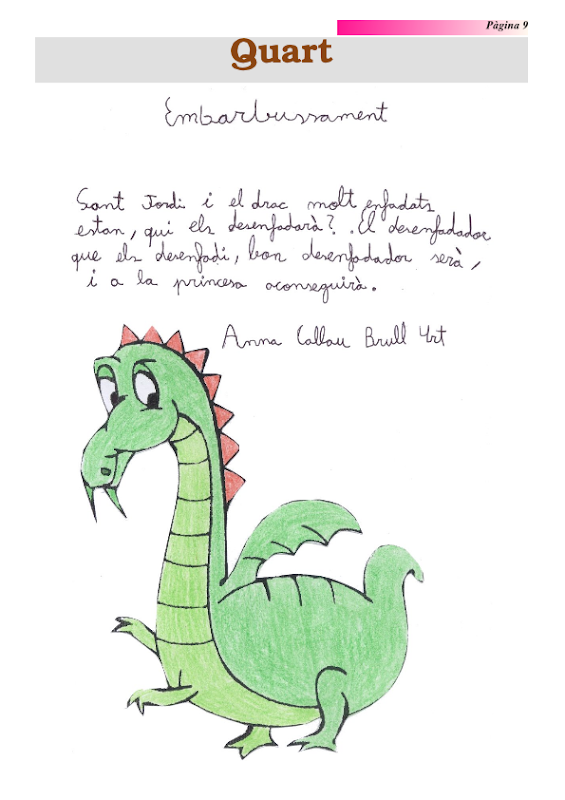 Pàgina 9
Quart
Embarbussament
Sant Jordi i el drac molt enfadats
estan, qui els desenfadarà? .El desenfadador
que els desenfadi, bon desenfadador serà,
i a la princesa aconseguirà.
Anna Callau Brull 4rt